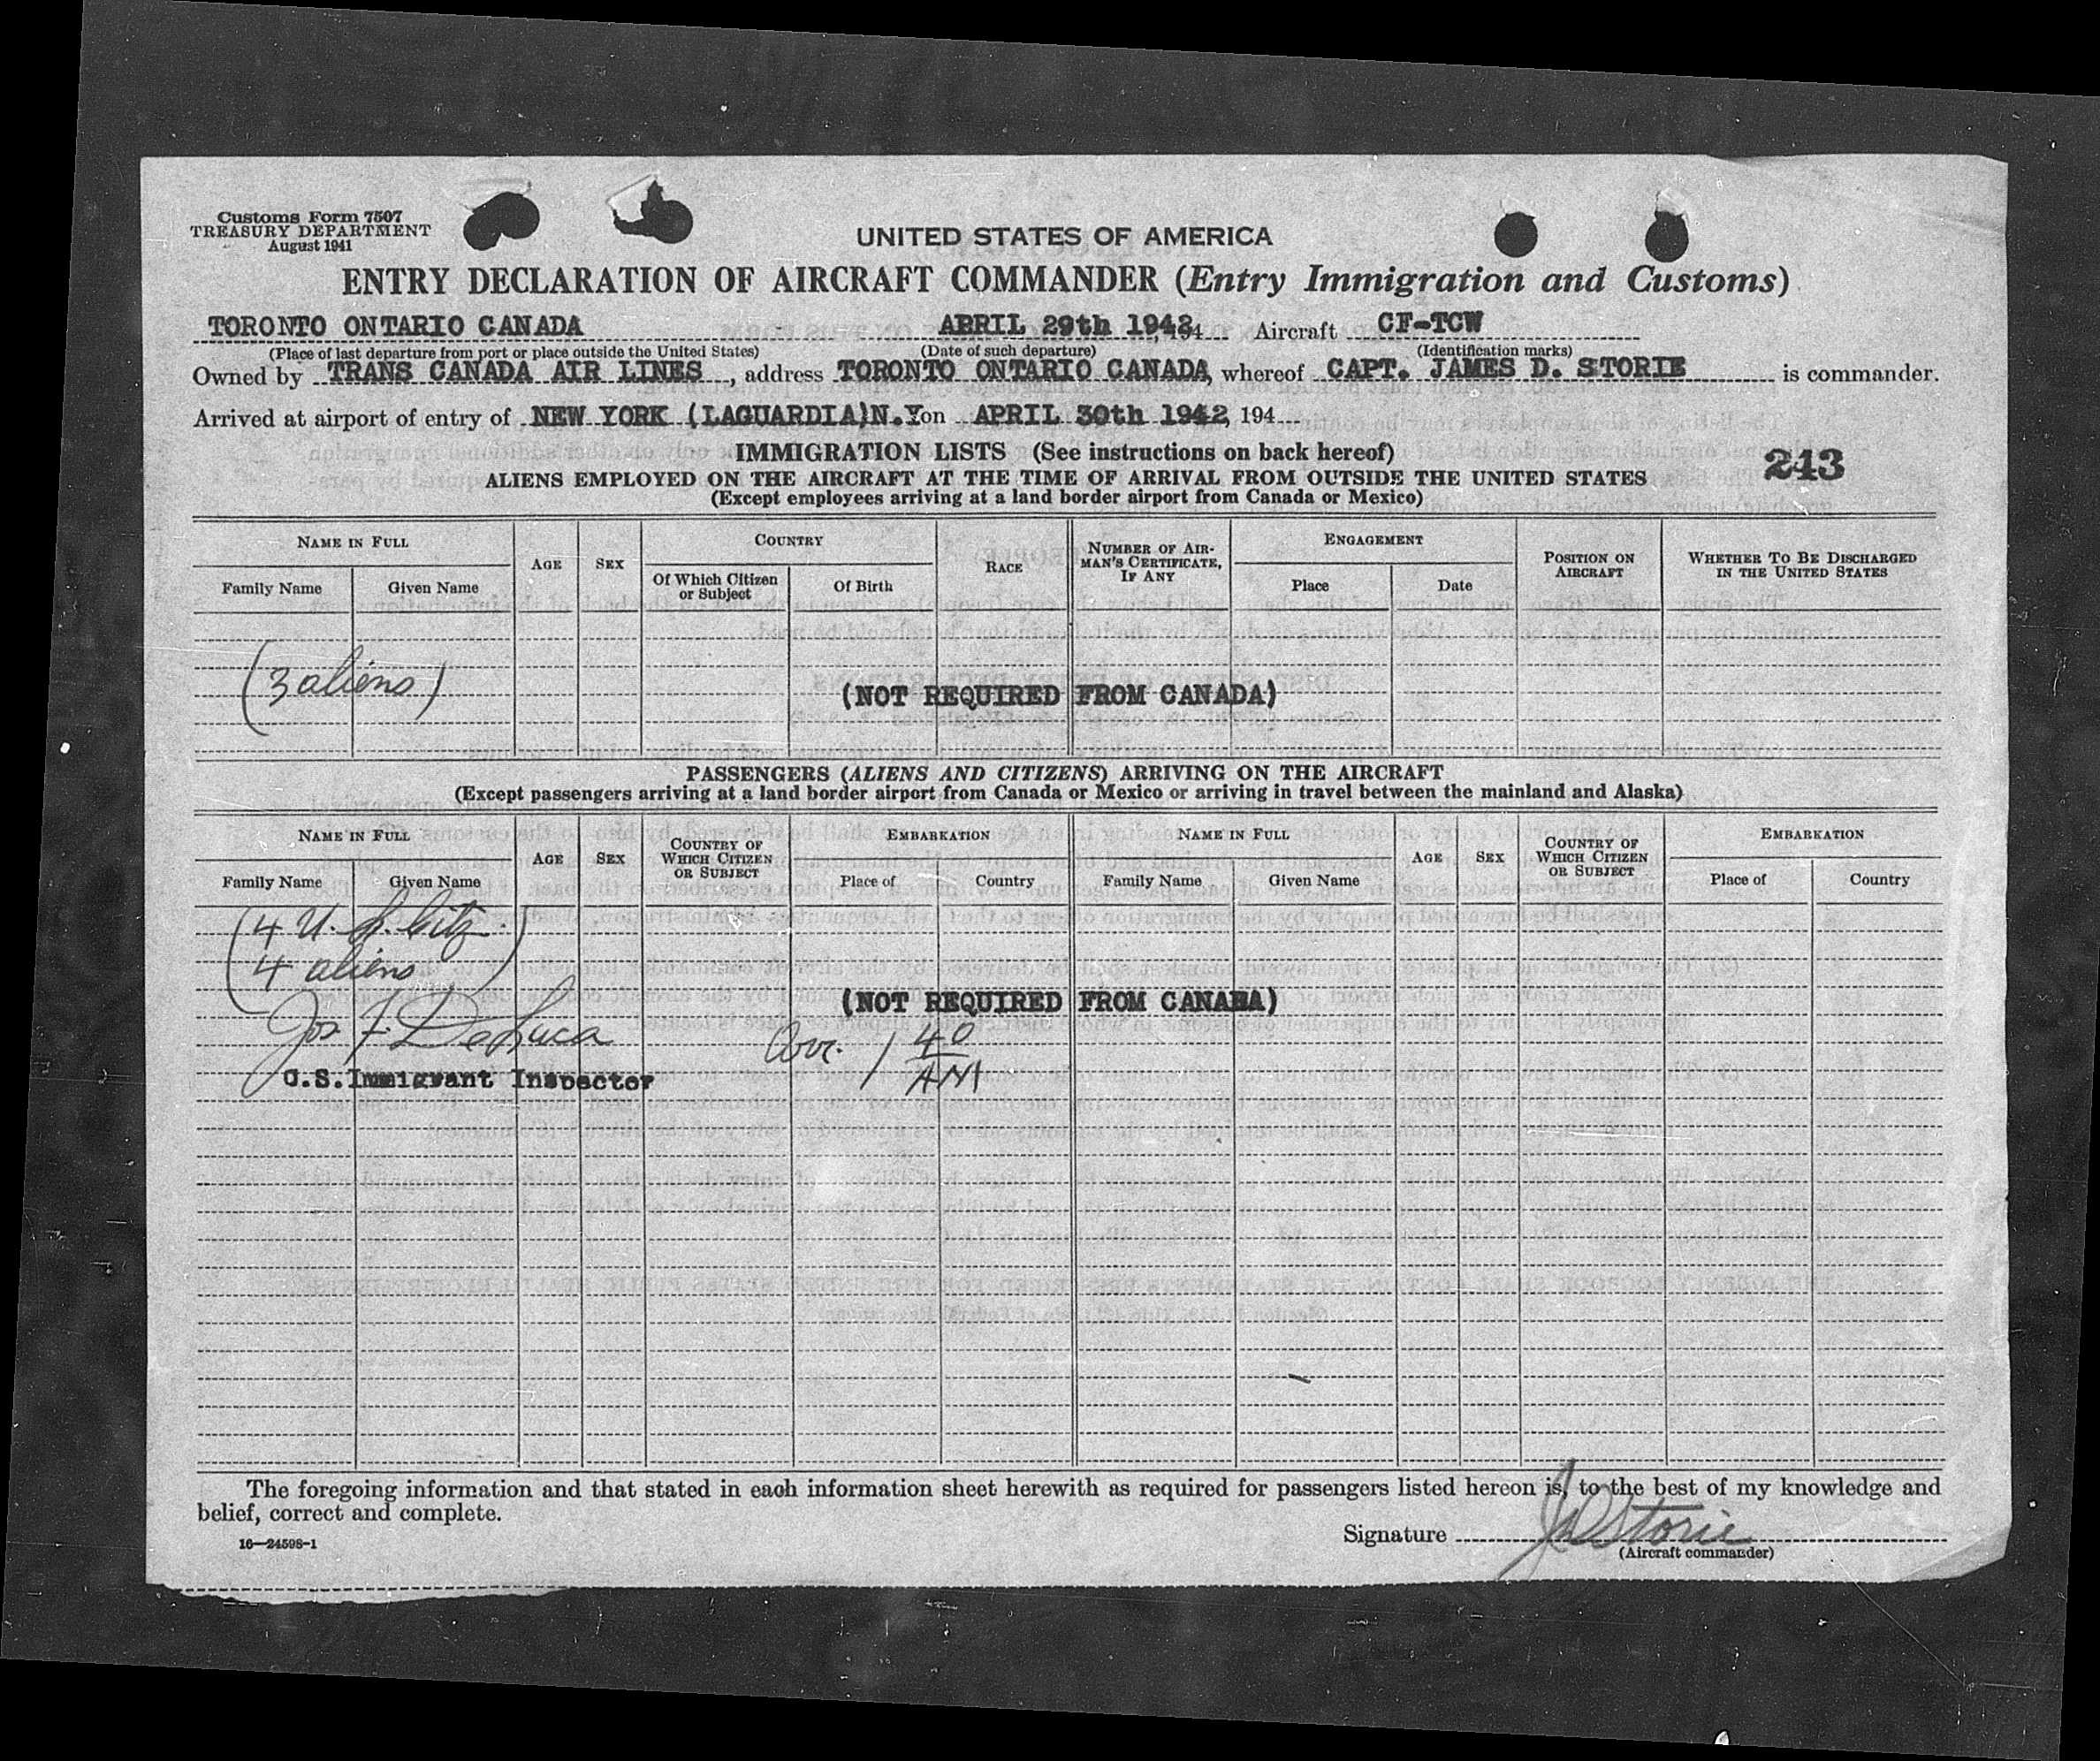 Customs Form 7507
TREASURY DEPARTMENT
August 1941
UNITED STATES OF AMERICA
ENTRY DECLARATION OF AIRCRAFT COMMANDER (Entry Immigration and Customs)
TORONTO ONTARIO CANADA APRIL 29th 1942, 194 Aircraft CF-TCW
(Place of last departure from port or place outside the United States) (Date of such departure) (Identification marks)
Owned by TRANS CANADA AIR LINES, address TORONTO ONTARIO CANADA, whereof CAPT. JAMES D. STORIE is commander.
Arrived at airport of entry of NEW YORK (LAGUARDIA)N.Y on APRIL 30th 1942, 194
IMMIGRATION LISTS (See instructions on back hereof)
243
ALIENS EMPLOYED ON THE AIRCRAFT AT THE TIME OF ARRIVAL FROM OUTSIDE THE UNITED STATES
(Except employees arriving at a land border airport from Canada or Mexico)
NAME IN FULL AGE SEX COUNTRY RACE NUMBER OF AIRMAN'S CERTIFICATE, IF ANY ENGAGEMENT POSITION ON AIRCRAFT WHETHER TO BE DISCHARGED IN THE UNITED STATES
Family Name Given Name Of Which Citizen or Subject Of Birth Place Date
(3 aliens)
(NOT REQUIRED FROM CANADA)
PASSENGERS (ALIENS AND CITIZENS) ARRIVING ON THE AIRCRAFT
(Except passengers arriving at a land border airport from Canada or Mexico or arriving in travel between the mainland and Alaska)
NAME IN FULL AGE SEX COUNTRY OF WHICH CITIZEN OR SUBJECT EMBARKATION NAME IN FULL AGE SEX COUNTRY OF WHICH CITIZEN OR SUBJECT EMBARKATION
Family Name Given Name Place of Country Family Name Given Name Place of Country
(4 U.S. Citz.
4 aliens)
(NOT REQUIRED FROM CANADA)
Jos F DeLuca
Arr. 1 40 AM
U.S.Immigrant Inspector
The foregoing information and that stated in each information sheet herewith as required for passengers listed hereon is, to the best of my knowledge and
belief, correct and complete.
Signature JD Storie
16—24598-1
(Aircraft commander)